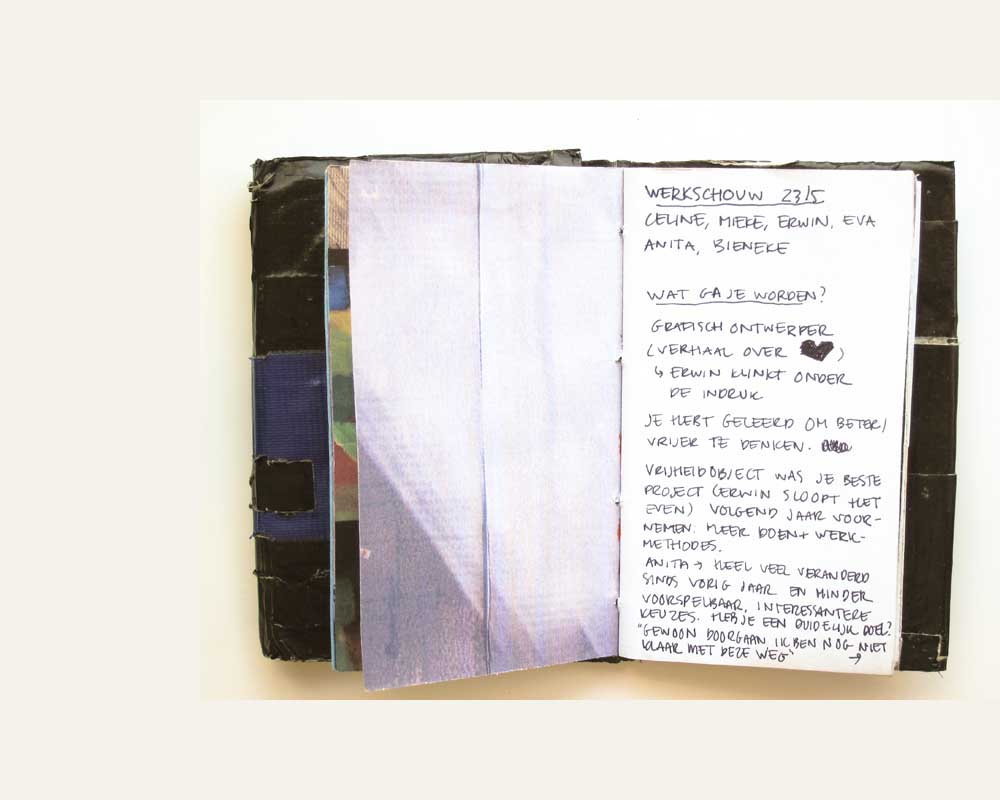 WERKSCHOUW 23/5
CELINE, MIEKE, ERWIN, EVA
ANITA, BIENEKE
WAT GA JE WORDEN?
GRAFISCH ONTWERPER
(VERHAAL OVER ♥)
↳ ERWIN KLINKT ONDER
DE INDRUK
JE HEBT GELEERD OM BETER/
VRIJER TE DENKEN.
VRIJHEIDOBJECT WAS JE BESTE
PROJECT (ERWIN SLOOPT HET
EVEN) VOLGEND JAAR VOOR-
NEMEN: MEER DOEN + WERK-
METHODES.
ANITA → HEEL VEEL VERANDERD
SINDS VORIG JAAR EN MINDER
VOORSPELBAAR, INTERESSANTERE
KEUZES. HEB JE EEN DUIDELIJK DOEL?
"GEWOON DOORGAAN IK BEN NOG NIET
KLAAR MET DEZE WEG" →